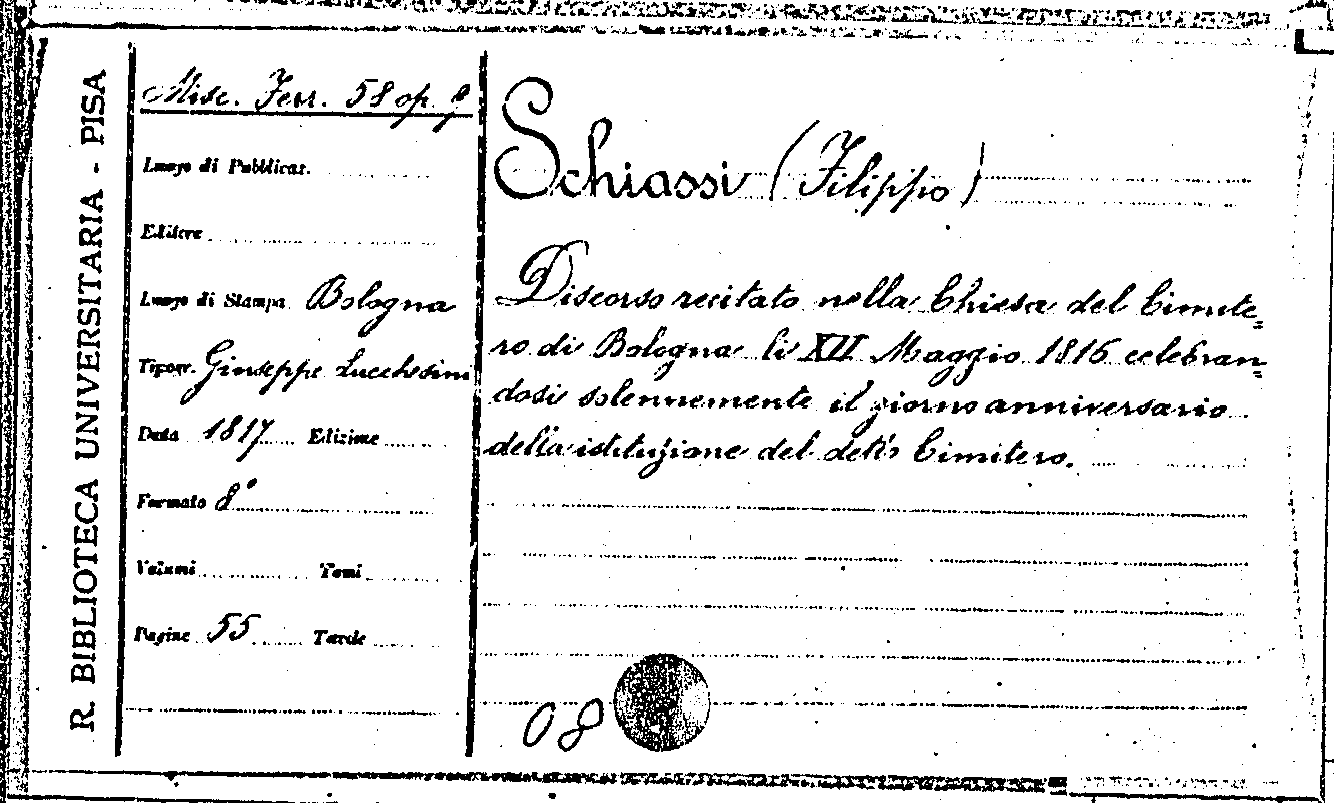 R. BIBLIOTECA UNIVERSITARIA - PISA
Misc. Ferr. 58 op.
Luogo di Pubblicaz.
Editore
Luogo di Stampa Bologna
Tipogr. Giuseppe Lucchesini
Data 1817 Edizione
Formato 8°
Volumi Tomi
Pagine 55 Tavole
Schiassi (Filippo)
Discorso recitato nella Chiesa del Cimite=
ro di Bologna li XII Maggio 1816 celebran=
dosi solennemente il giorno anniversario
della istituzione del detto Cimitero.
08